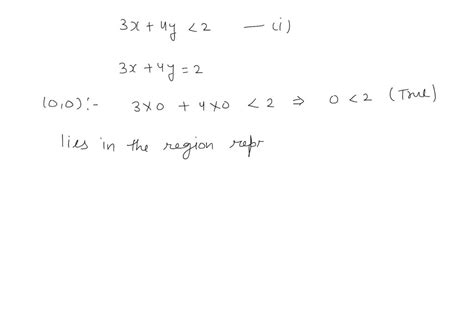 3x + 4y < 2 — (i)
3x + 4y = 2
(0,0) :- 3×0 + 4×0 < 2 ⇒ 0 < 2 (True)
lies in the region repr